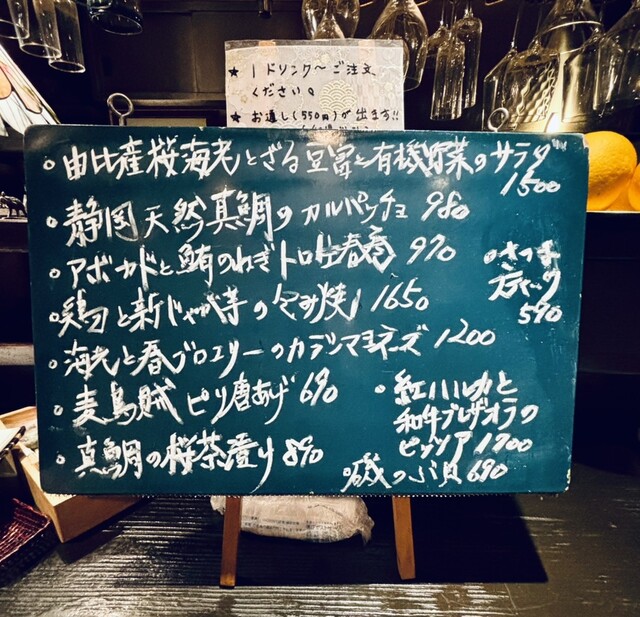 ★ 1ドリンク〜ご注文
ください。
★ お通し(550円)が出ます!!
・由比産桜海老とざる豆富と有機野菜のサラダ
1500
・静岡天然真鯛のカルパッチョ 980
・アボカドと鮪のねぎトロ生春巻 970
・鶏と新じゃが芋のごま焼 1650
・海老と春ブロッコリーのカラシマヨネーズ 1200
・麦烏賊ピリ唐あげ 690
・真鯛の桜茶漬け 890
・さつま
スティック
590
・紅ハルカと
和牛ブレザオラの
ピッツア 1700
・磯つぶ貝 690